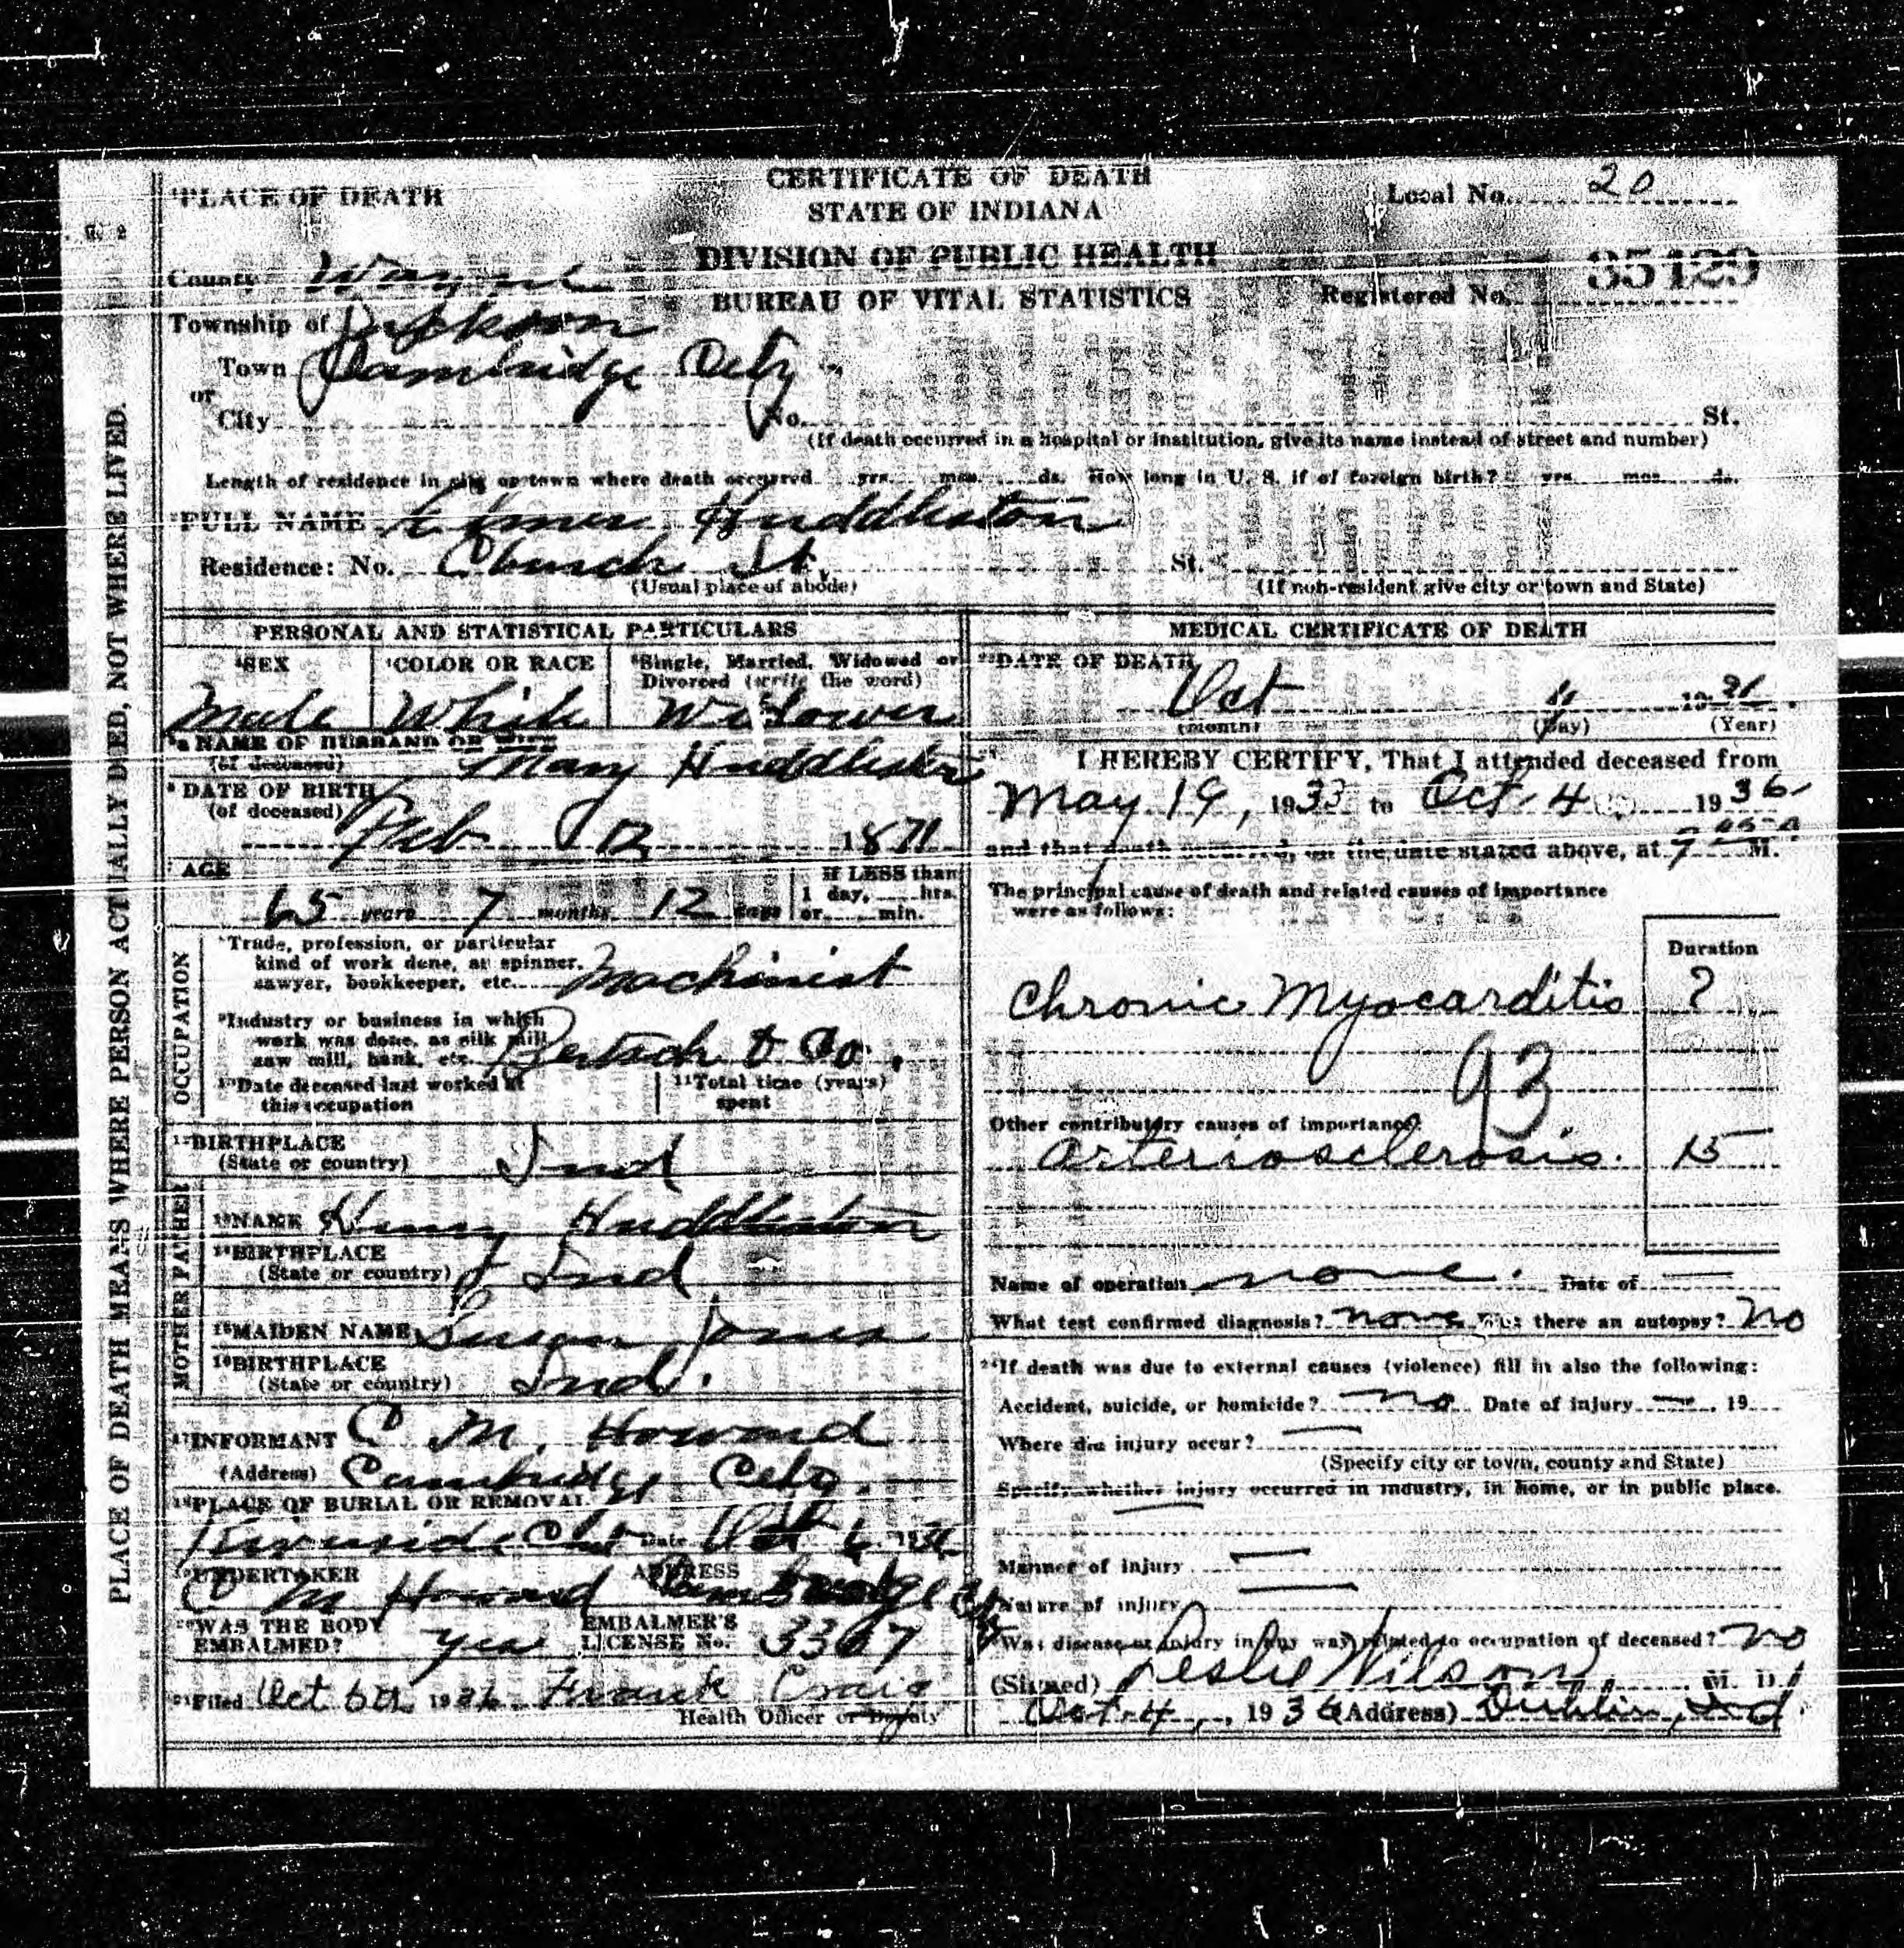 CERTIFICATE OF DEATH
STATE OF INDIANA
DIVISION OF PUBLIC HEALTH
BUREAU OF VITAL STATISTICS
Local No. 20
Registered No. 35429
PLACE OF DEATH
County Wayne
Township of Jackson
Town Cambridge City
or
City No. St.
(If death occurred in a hospital or institution, give its name instead of street and number)
Length of residence in city or town where death occurred yrs. mos. ds. How long in U. S. if of foreign birth? yrs. mos. ds.
FULL NAME Elmer Huddleston
Residence: No. Church St. St.
(Usual place of abode) (If non-resident give city or town and State)
PLACE OF DEATH MEANS WHERE PERSON ACTUALLY DIED, NOT WHERE LIVED.
PERSONAL AND STATISTICAL PARTICULARS
SEX COLOR OR RACE Single, Married, Widowed or
Divorced (write the word)
Male White Widower
NAME OF HUSBAND OR WIFE
(of deceased) Mary Huddleston
DATE OF BIRTH
(of deceased)
Feb 12 1871
AGE If LESS than
1 day, hrs.
65 years 7 months 12 days or min.
OCCUPATION
Trade, profession, or particular
kind of work done, as spinner,
sawyer, bookkeeper, etc. Machinist
Industry or business in which
work was done, as silk mill
saw mill, bank, etc. Bertsch & Co.
Date deceased last worked at
this occupation
Total time (years)
spent
BIRTHPLACE
(State or country) Ind
FATHER
NAME Henry Huddleston
BIRTHPLACE
(State or country) Ind
MOTHER
MAIDEN NAME Susan Jones
BIRTHPLACE
(State or country) Ind.
INFORMANT C M. Howard
(Address) Cambridge City.
PLACE OF BURIAL OR REMOVAL
Riverside Date Oct 6 1936
UNDERTAKER ADDRESS
C M Howard Cambridge City
WAS THE BODY
EMBALMED? yes
EMBALMER'S
LICENSE No. 3367
Filed Oct 5th 1936 Frank Craig
Health Officer or Deputy
MEDICAL CERTIFICATE OF DEATH
DATE OF DEATH
Oct 4 1936
(Month) (Day) (Year)
I HEREBY CERTIFY, That I attended deceased from
May 19, 1933 to Oct. 4 1936
and that death occurred, on the date stated above, at 7 M.
The principal cause of death and related causes of importance
were as follows:
Duration
Chronic Myocarditis ?
93
Other contributory causes of importance:
Arteriosclerosis. 15
Name of operation none. Date of
What test confirmed diagnosis? none Was there an autopsy? No
If death was due to external causes (violence) fill in also the following:
Accident, suicide, or homicide? no Date of injury , 19
Where did injury occur?
(Specify city or town, county and State)
Specify whether injury occurred in industry, in home, or in public place.
Manner of injury
Nature of injury
Was disease or injury in any way related to occupation of deceased? no
(Signed) Leslie Wilson, M. D.
Oct. 4, 1936 (Address) Dublin, Ind.